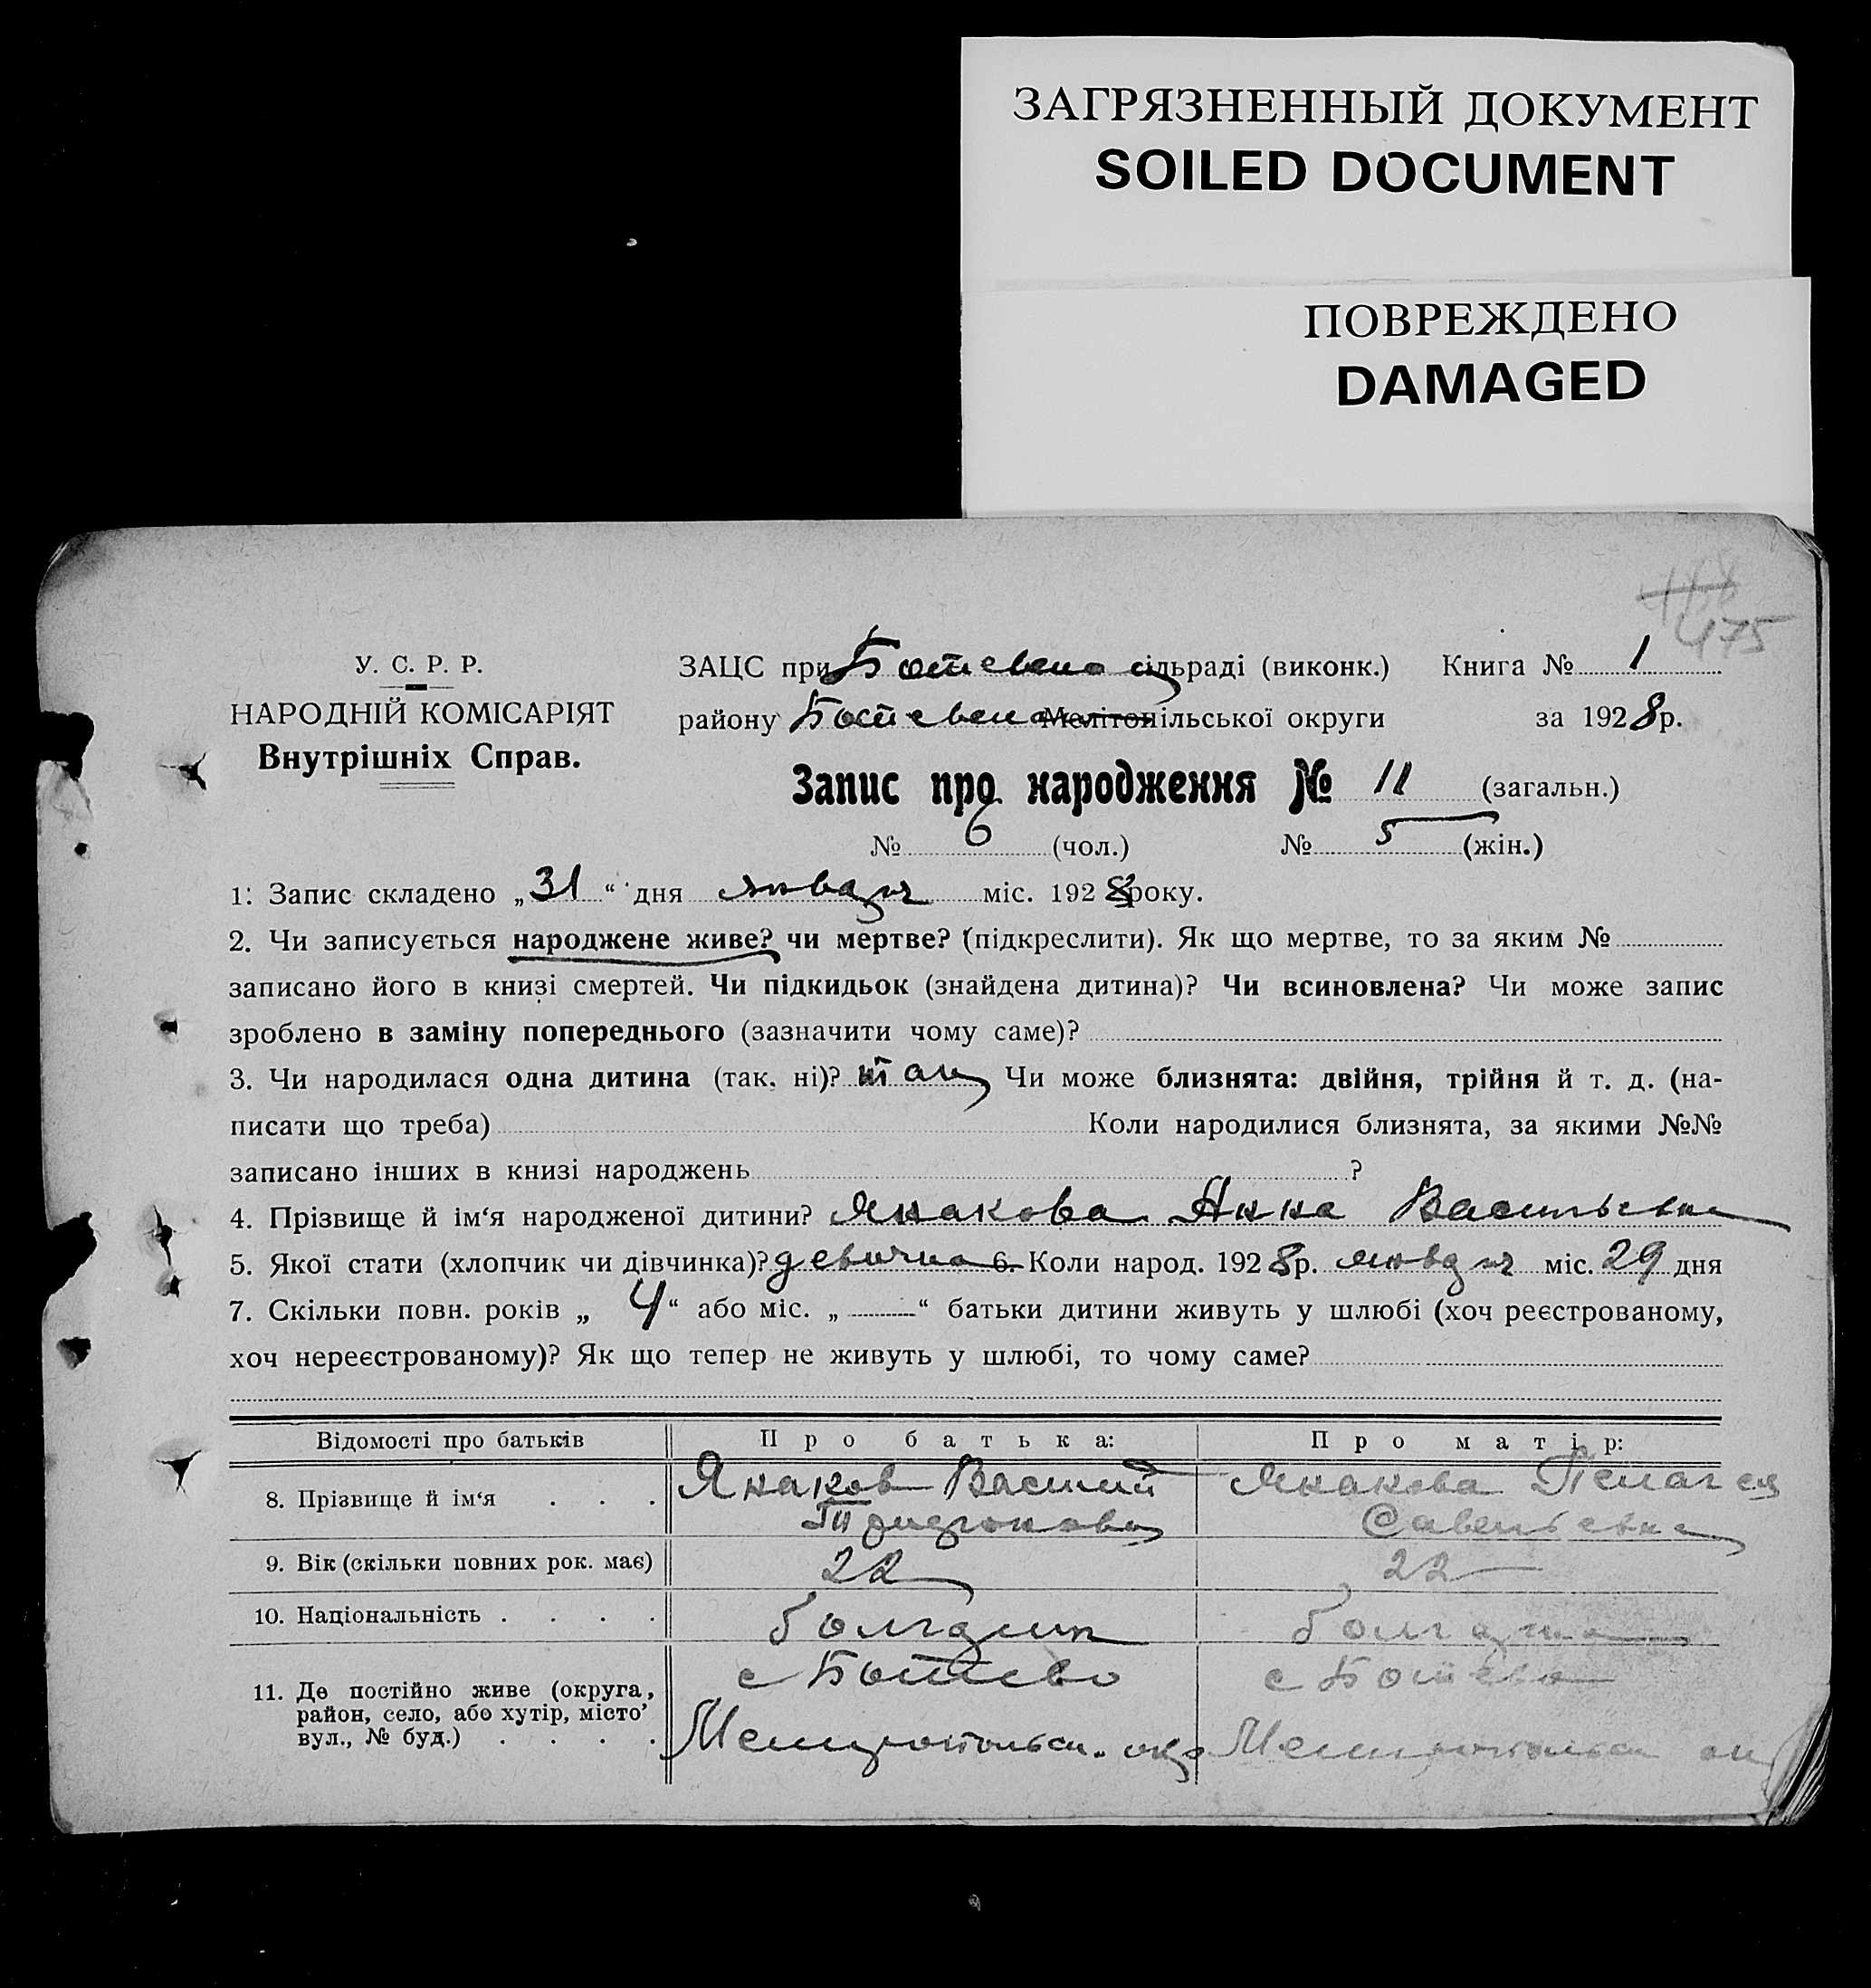 ЗАГРЯЗНЕННЫЙ ДОКУМЕНТ
SOILED DOCUMENT
ПОВРЕЖДЕНО
DAMAGED
475
У. С. Р. Р.
НАРОДНІЙ КОМІСАРІЯТ
Внутрішніх Справ.
ЗАЦС при Ботевской сільраді (виконк.) Книга № 1
району Мелітопільської округи за 1928 р.
Запис про народження № 11 (загальн.)
№ 6 (чол.) № 5 (жін.)
1. Запис складено „31“ дня января міс. 1928 року.
2. Чи записується народжене живе? чи мертве? (підкреслити). Як що мертве, то за яким №
записано його в книзі смертей. Чи підкидьок (знайдена дитина)? Чи всиновлена? Чи може запис
зроблено в заміну попереднього (зазначити чому саме)?
3. Чи народилася одна дитина (так, ні)? так Чи може близнята: двійня, трійня й т. д. (на-
писати що треба) Коли народилися близнята, за якими №№
записано інших в книзі народжень ?
4. Прізвище й ім‘я народженої дитини? Янакова Анна Васильевна
5. Якої стати (хлопчик чи дівчинка)? 6. Коли народ. 1928 р. января міс. 29 дня
7. Скільки повн. років „4“ або міс. „ “ батьки дитини живуть у шлюбі (хоч реєстрованому,
хоч нереєстрованому)? Як що тепер не живуть у шлюбі, то чому саме?
Відомості про батьків Про батька: Про матір:
8. Прізвище й ім‘я . . . Янаков Василий Янакова Пелагея
Савельевна
9. Вік (скільки повних рок. має) 22 22
10. Національність . . . . болгарин болгарка
11. Де постійно живе (округа, с Ботево с Ботево
район, село, або хутір, місто,
вул., № буд.) . . . . Мелитопольск. окр Мелитопольск ок